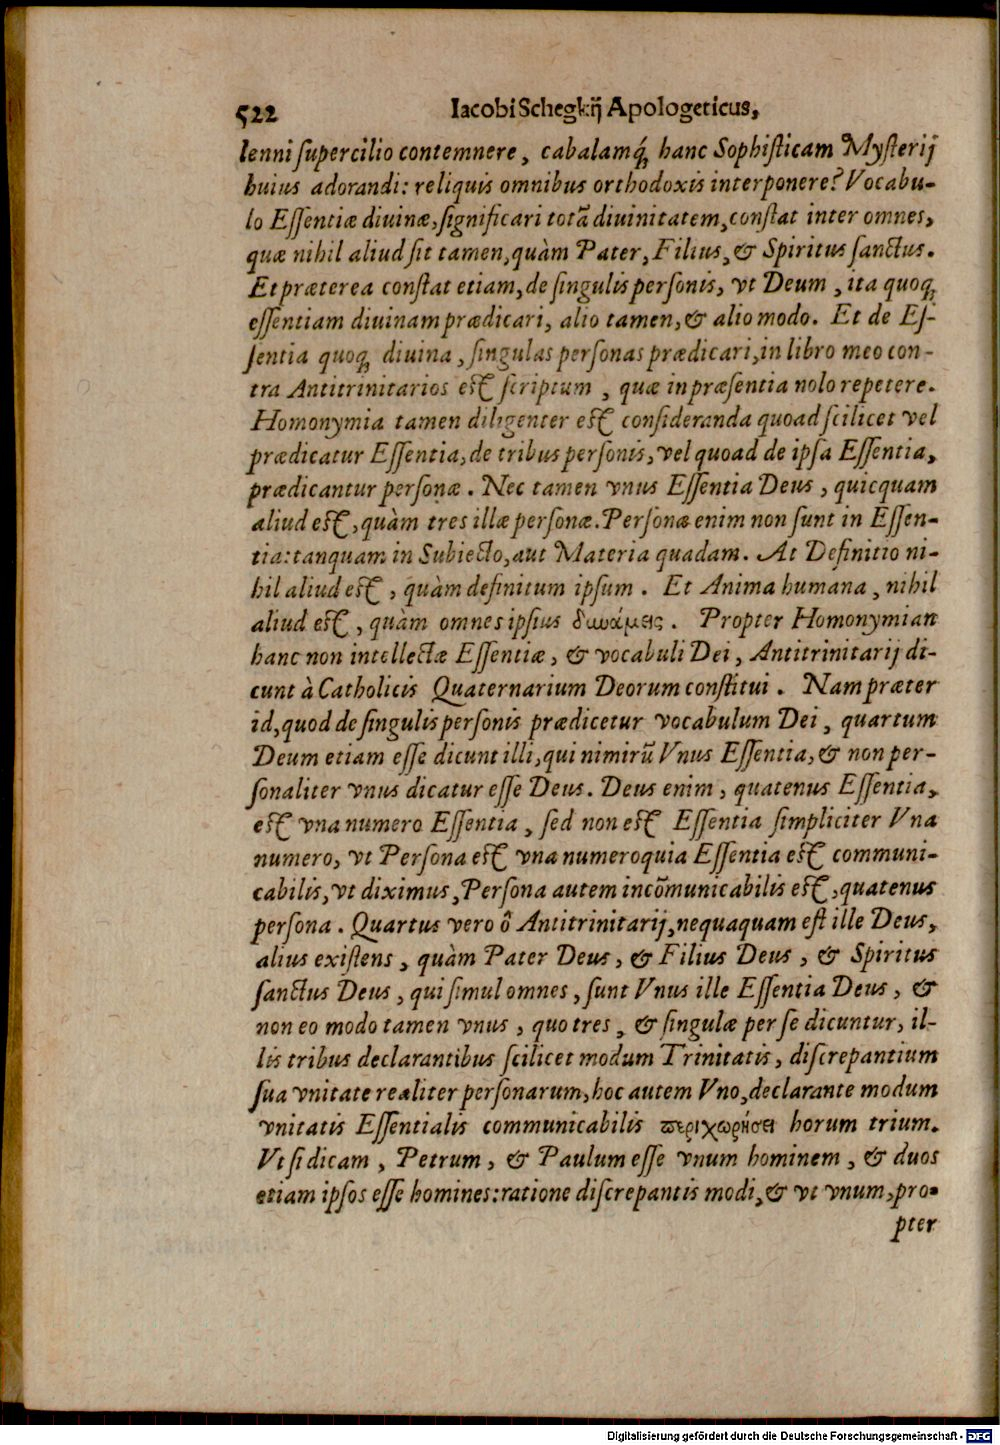 522 Iacobi Schegkij Apologeticus,
lenni supercilio contemnere, cabalamq́; hanc Sophisticam Mysterij
huius adorandi: reliquis omnibus orthodoxis interponere? Vocabu-
lo Essentiæ diuinæ, significari totã diuinitatem, constat inter omnes,
quæ nihil aliud sit tamen, quàm Pater, Filius, & Spiritus sanctus.
Et præterea constat etiam, de singulis personis, vt Deum, ita quoq;
essentiam diuinam prædicari, alio tamen, & alio modo. Et de Es-
sentia quoq; diuina, singulas personas prædicari, in libro meo con-
tra Antitrinitarios est scriptum, quæ in præsentia nolo repetere.
Homonymia tamen diligenter est consideranda quoad scilicet vel
prædicatur Essentia, de tribus personis, vel quoad de ipsa Essentia,
prædicantur personæ. Nec tamen vnus Essentia Deus, quicquam
aliud est, quàm tres illæ personæ. Personæ enim non sunt in Essen-
tia: tanquam in Subiecto, aut Materia quadam. At Definitio ni-
hil aliud est, quàm definitum ipsum. Et Anima humana, nihil
aliud est, quàm omnes ipsius δυνάμεις. Propter Homonymian
hanc non intellectæ Essentiæ, & vocabuli Dei, Antitrinitarij di-
cunt à Catholicis Quaternarium Deorum constitui. Nam præter
id, quod de singulis personis prædicetur vocabulum Dei, quartum
Deum etiam esse dicunt illi, qui nimirũ Vnus Essentia, & non per-
sonaliter vnus dicatur esse Deus. Deus enim, quatenus Essentia,
est vna numero Essentia, sed non est Essentia simpliciter Vna
numero, vt Persona est vna numero quia Essentia est communi-
cabilis, vt diximus, Persona autem incõmunicabilis est, quatenus
persona. Quartus vero ô Antitrinitarij, nequaquam est ille Deus,
alius existens, quàm Pater Deus, & Filius Deus, & Spiritus
sanctus Deus, qui simul omnes, sunt Vnus ille Essentia Deus, &
non eo modo tamen vnus, quo tres, & singulæ per se dicuntur, il-
lis tribus declarantibus scilicet modum Trinitatis, discrepantium
sua vnitate realiter personarum, hoc autem Vno, declarante modum
vnitatis Essentialis communicabilis περιχωρήσει horum trium.
Vt si dicam, Petrum, & Paulum esse vnum hominem, & duos
etiam ipsos esse homines: ratione discrepantis modi, & vt vnum, pro-
pter
Digitalisierung gefördert durch die Deutsche Forschungsgemeinschaft - DFG